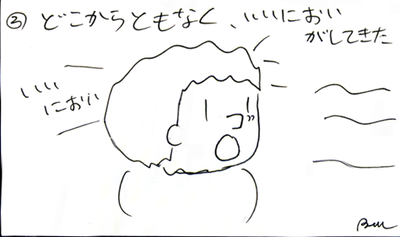 ③ どこからともなく、いいにおい
がしてきた
いい
におい